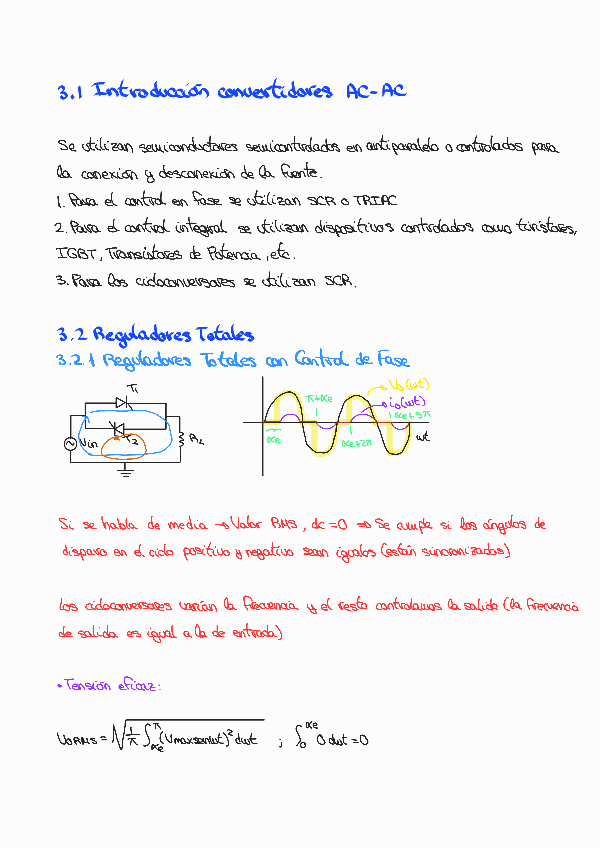 3.1 Introducción convertidores AC-AC
Se utilizan semiconductores semicontrolados en antiparalelo o controlados para
la conexión y desconexión de la fuente.
1. Para el control en fase se utilizan SCR o TRIAC
2. Para el control integral se utilizan dispositivos controlados como tiristores,
IGBT, Transistores de Potencia, etc.
3. Para los cicloconversores se utilizan SCR.
3.2 Reguladores Totales
3.2.1 Reguladores Totales con Control de Fase
T1
T2
Vin
RL
π+αe
Vo(wt)
io(wt)
αe+3π
αe
αe+2π
wt
Si se habla de media → Valor RMS, dc=0 ⇒ Se cumple si los ángulos de
disparo en el ciclo positivo y negativo sean iguales (están sincronizados)
Los cicloconversores varían la frecuencia y el resto controlamos la salida (la frecuencia
de salida es igual a la de entrada)
• Tensión eficaz:
VORMS = √(1/π ∫αe^π (Vmaxsenwt)² dwt) ; ∫0^αe 0 dwt = 0